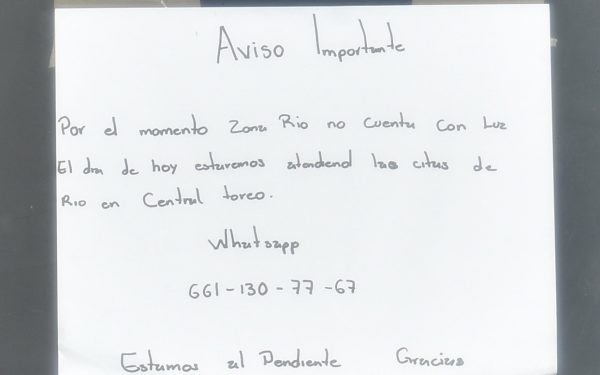 Aviso Importante
Por el momento Zona Rio no cuenta con Luz
El dia de hoy estaremos atendiend las citas de
Rio en Central toreo.
Whatsapp
661-130-77-67
Estamos al Pendiente Gracias